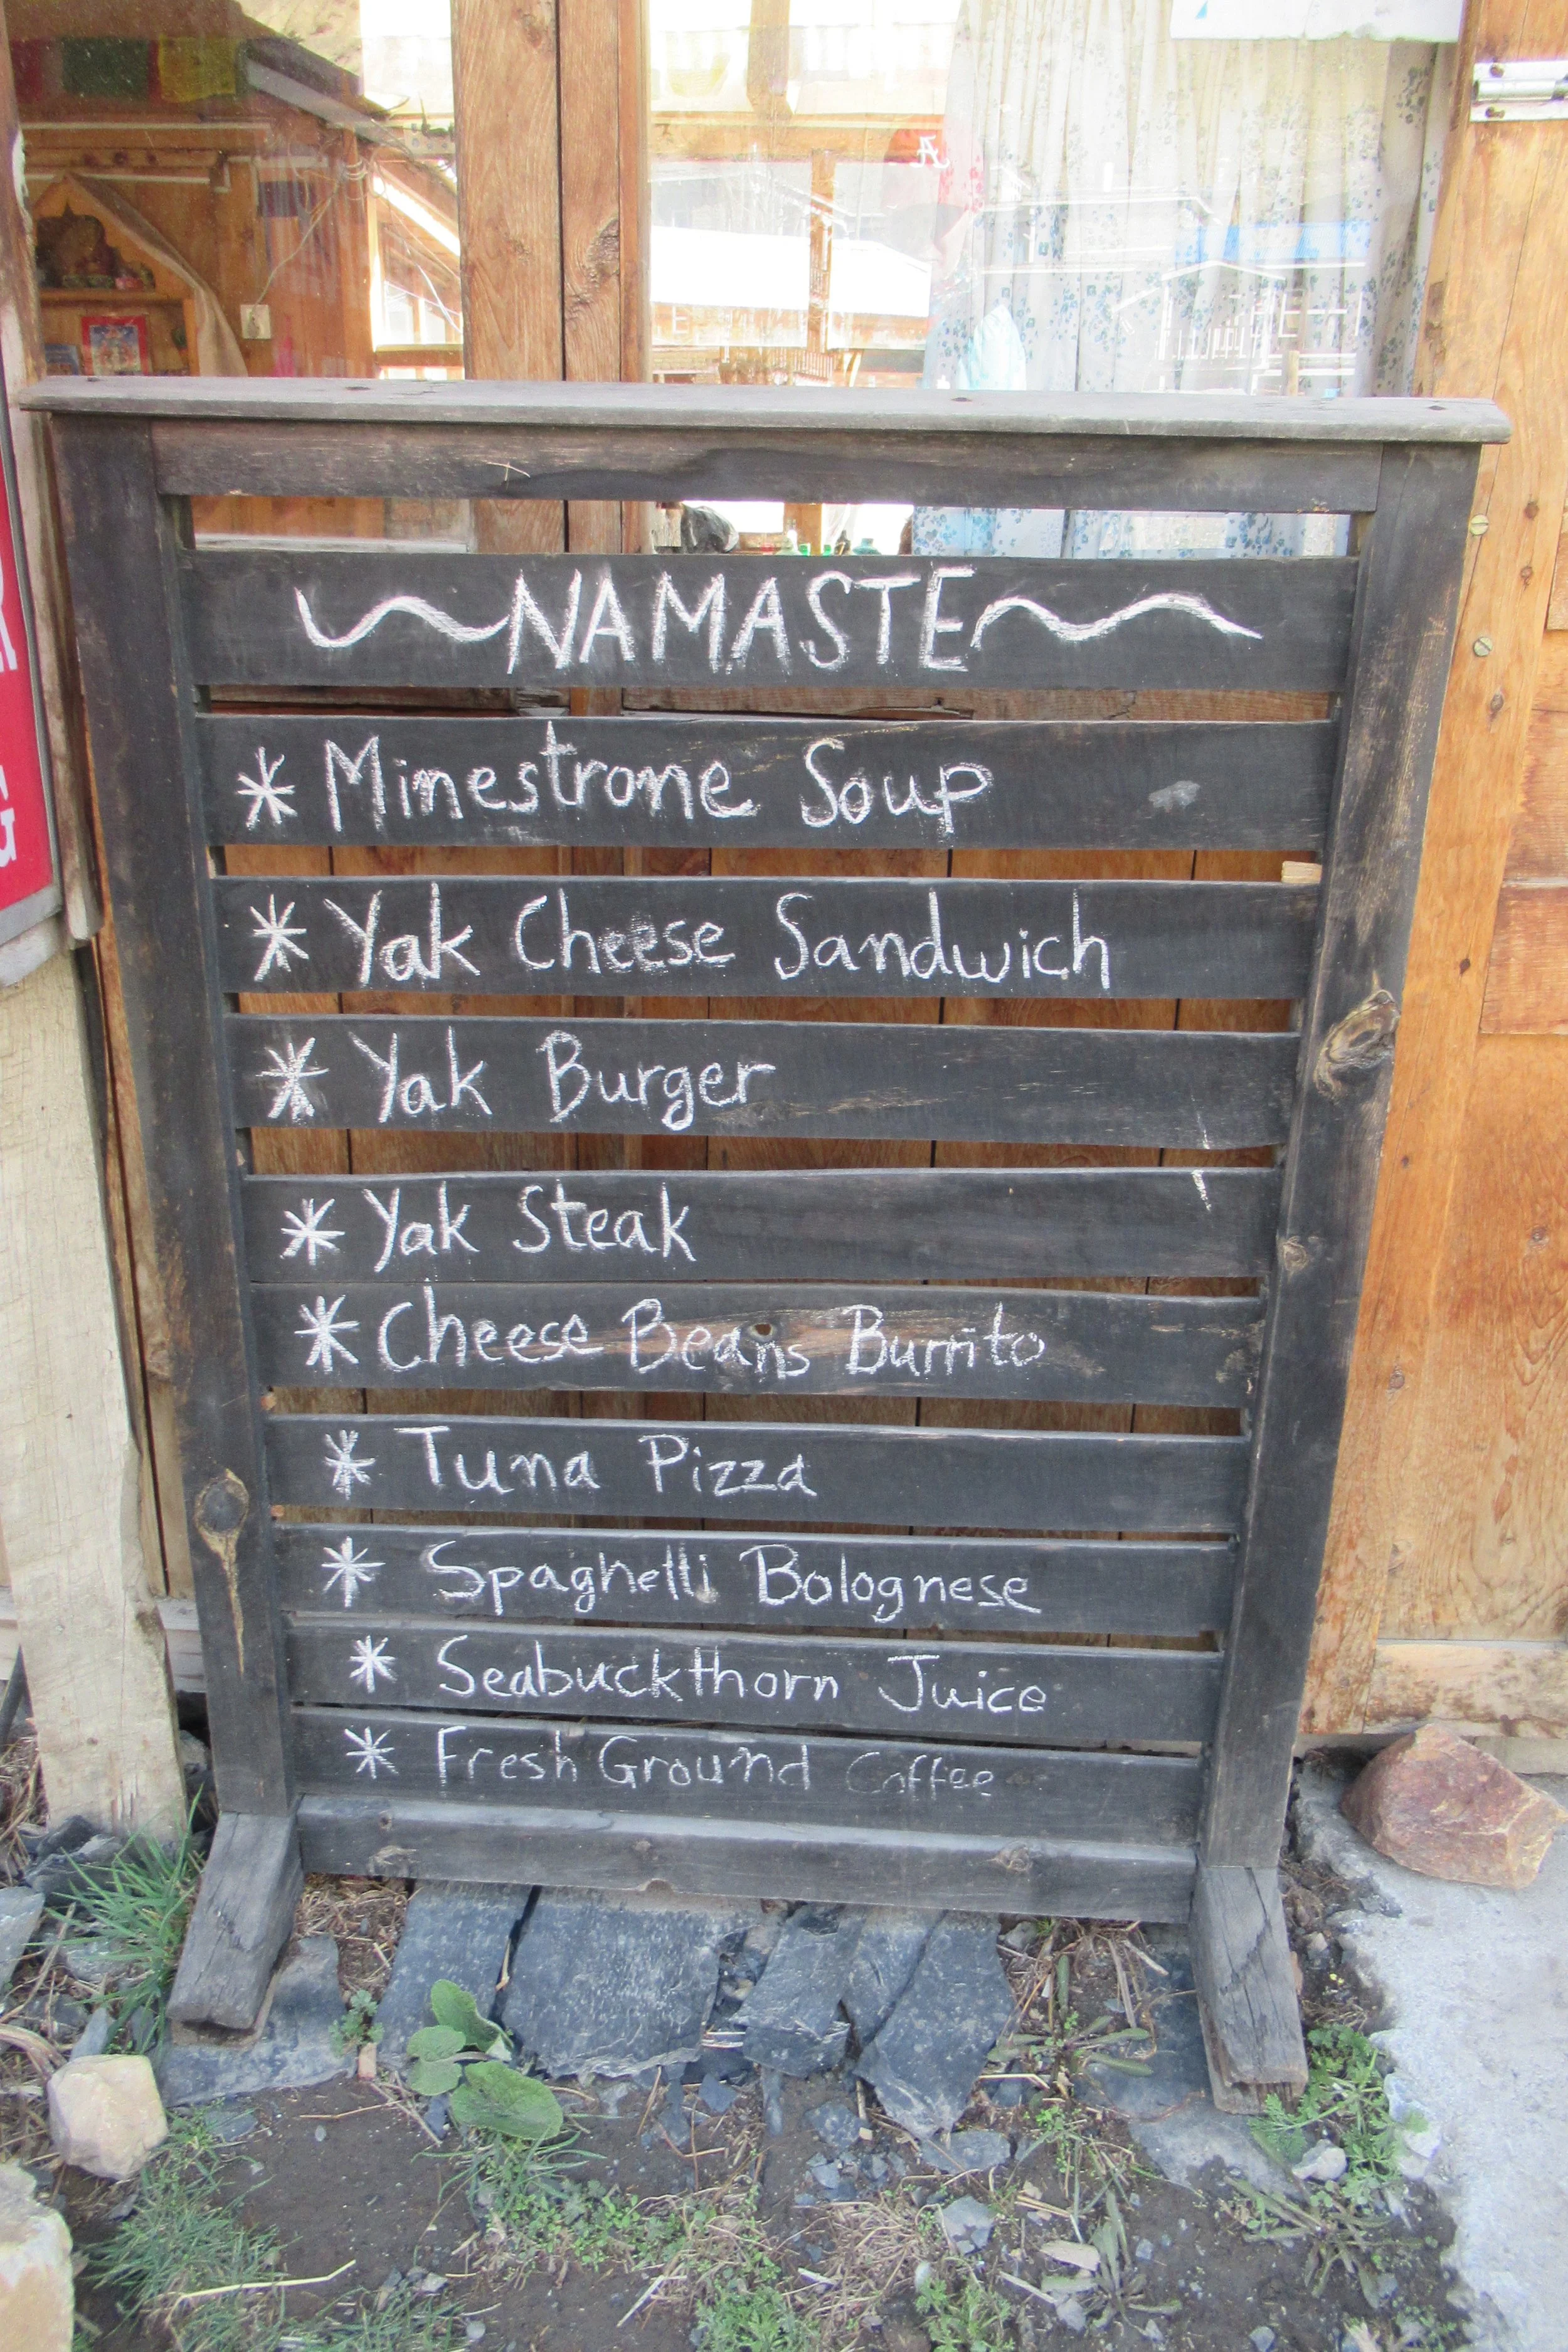 NAMASTE
* Minestrone Soup
* Yak Cheese Sandwich
* Yak Burger
* Yak Steak
* Cheese Beans Burrito
* Tuna Pizza
* Spaghetti Bolognese
* Seabuckthorn Juice
* Fresh Ground Coffee